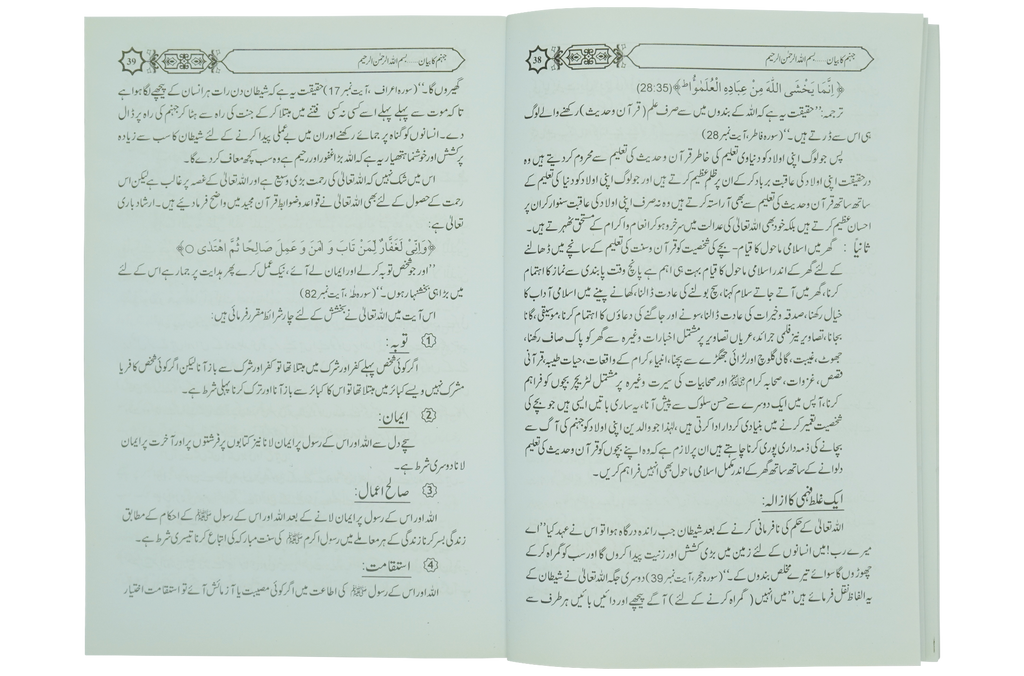 جہنم کا بیان ..... بسم اللہ الرحمٰن الرحیم
38
﴿ اِنَّمَا یَخْشَی اللّٰهَ مِنْ عِبَادِهِ الْعُلَمٰٓؤُا ط ﴾ (28:35)
ترجمہ: ’’حقیقت یہ ہے کہ اللہ کے بندوں میں سے صرف علم (قرآن وحدیث) رکھنے والے لوگ
ہی اس سے ڈرتے ہیں۔‘‘ (سورہ فاطر، آیت نمبر 28)
پس جو لوگ اپنی اولاد کو دنیاوی تعلیم کی خاطر قرآن و حدیث کی تعلیم سے محروم کر دیتے ہیں وہ
درحقیقت اپنی اولاد کی عاقبت برباد کر کے ان پر ظلم عظیم کرتے ہیں اور جو لوگ اپنی اولاد کو دنیا کی تعلیم کے
ساتھ ساتھ قرآن و حدیث کی تعلیم سے بھی آراستہ کرتے ہیں وہ نہ صرف اپنی اولاد کی عاقبت سنوار کر ان پر
احسان عظیم کرتے ہیں بلکہ خود بھی اللہ تعالیٰ کی عدالت میں سرخرو ہو کر انعام و اکرام کے مستحق ٹھہرتے ہیں۔
ثانیاً : گھر میں اسلامی ماحول کا قیام- بچے کی شخصیت کو قرآن و سنت کی تعلیم کے سانچے میں ڈھالنے
کے لئے گھر کے اندر اسلامی ماحول کا قیام بہت ہی اہم ہے پانچ وقت پابندی سے نماز کا اہتمام
کرنا، گھر میں آتے جاتے سلام کہنا، سچ بولنے کی عادت ڈالنا، کھانے پینے میں اسلامی آداب کا
خیال رکھنا، صدقہ و خیرات کی عادت ڈالنا، سونے اور جاگنے کی دعاؤں کا اہتمام کرنا، موسیقی، گانا
بجانا، تصاویر نیز فلمی جرائد، عریاں تصاویر پر مشتمل اخبارات وغیرہ سے گھر کو پاک صاف رکھنا،
جھوٹ، غیبت، گالی گلوچ اور لڑائی جھگڑے سے بچنا، انبیاء کرام کے واقعات، حیات طیبہ، قرآنی
قصص، غزوات، صحابہ کرام اور صحابیات کی سیرت وغیرہ پر مشتمل لٹریچر بچوں کو فراہم
کرنا، آپس میں ایک دوسرے سے حسن سلوک سے پیش آنا، یہ ساری باتیں ایسی ہیں جو بچے کی
شخصیت تعمیر کرنے میں بنیادی کردار ادا کرتی ہیں، لہٰذا جو والدین اپنی اولاد کو جہنم کی آگ سے
بچانے کی ذمہ داری پوری کرنا چاہتے ہیں ان پر لازم ہے کہ وہ اپنے بچوں کو قرآن و حدیث کی تعلیم
دلوانے کے ساتھ ساتھ گھر کے اندر مکمل اسلامی ماحول بھی انہیں فراہم کریں۔
ایک غلط فہمی کا ازالہ:
اللہ تعالیٰ کے حکم کی نافرمانی کرنے کے بعد شیطان جب راندہ درگاہ ہوا تو اس نے عہد کیا ’’اے
میرے رب! میں انسانوں کے لئے زمین میں بڑی کشش اور زنیت پیدا کروں گا اور سب کو گمراہ کر کے
چھوڑوں گا سوائے تیرے مخلص بندوں کے۔‘‘ (سورہ حجر، آیت نمبر 39) دوسری جگہ اللہ تعالیٰ نے شیطان کے
یہ الفاظ نقل فرمائے ہیں ’’میں انہیں (گمراہ کرنے کے لئے) آگے پیچھے اور دائیں بائیں ہر طرف سے
جہنم کا بیان ..... بسم اللہ الرحمٰن الرحیم
39
گھیروں گا۔‘‘ (سورہ اعراف، آیت نمبر 17) حقیقت یہ ہے کہ شیطان دن رات ہر انسان کے پیچھے لگا ہوا ہے
تاکہ موت سے پہلے پہلے اسے کسی نہ کسی فتنے میں مبتلا کر کے جنت کی راہ سے ہٹا کر جہنم کی راہ پر ڈال
دے۔ انسانوں کو گناہ پر جمائے رکھنے اور ان میں بے عملی پیدا کرنے کے لئے شیطان کا سب سے زیادہ
پرکشش اور خوشنما ہتھیار یہ ہے کہ اللہ بڑا غفور اور رحیم ہے وہ سب کچھ معاف کر دے گا۔
اس میں شک نہیں کہ اللہ تعالیٰ کی رحمت بڑی وسیع ہے اور اللہ تعالیٰ کے غصہ پر غالب ہے لیکن اس
رحمت کے حصول کے لئے بھی اللہ تعالیٰ نے قواعد و ضوابط قرآن مجید میں واضح فرما دیئے ہیں۔ ارشاد باری
تعالیٰ ہے:
﴿وَاِنِّیْ لَغَفَّارٌ لِّمَنْ تَابَ وَ اٰمَنَ وَ عَمِلَ صَالِحًا ثُمَّ اهْتَدٰی ○﴾
’’اور جو شخص توبہ کر لے اور ایمان لے آئے، نیک عمل کرے پھر ہدایت پر جما رہے اس کے لئے
میں بڑا ہی بخشنہار ہوں۔‘‘ (سورہ طٰہٰ، آیت نمبر 82)
اس آیت میں اللہ تعالیٰ نے بخشش کے لئے چار شرائط مقرر فرمائی ہیں:
① توبہ:
اگر کوئی شخص پہلے کفر اور شرک میں مبتلا تھا تو کفر اور شرک سے باز آنا لیکن اگر کوئی شخص کافر یا
مشرک نہیں ویسے کبائر میں مبتلا تھا تو اس کا کبائر سے باز آنا اور ترک کرنا پہلی شرط ہے۔
② ایمان:
سچے دل سے اللہ اور اس کے رسول پر ایمان لانا نیز کتابوں پر فرشتوں پر اور آخرت پر ایمان
لانا دوسری شرط ہے۔
③ صالح اعمال:
اللہ اور اس کے رسول پر ایمان لانے کے بعد اللہ اور اس کے رسول ﷺ کے احکام کے مطابق
زندگی بسر کرنا زندگی کے ہر معاملے میں رسول اکرم ﷺ کی سنت مبارکہ کی اتباع کرنا تیسری شرط ہے۔
④ استقامت:
اللہ اور اس کے رسول ﷺ کی اطاعت میں اگر کوئی مصیبت یا آزمائش آئے تو استقامت اختیار